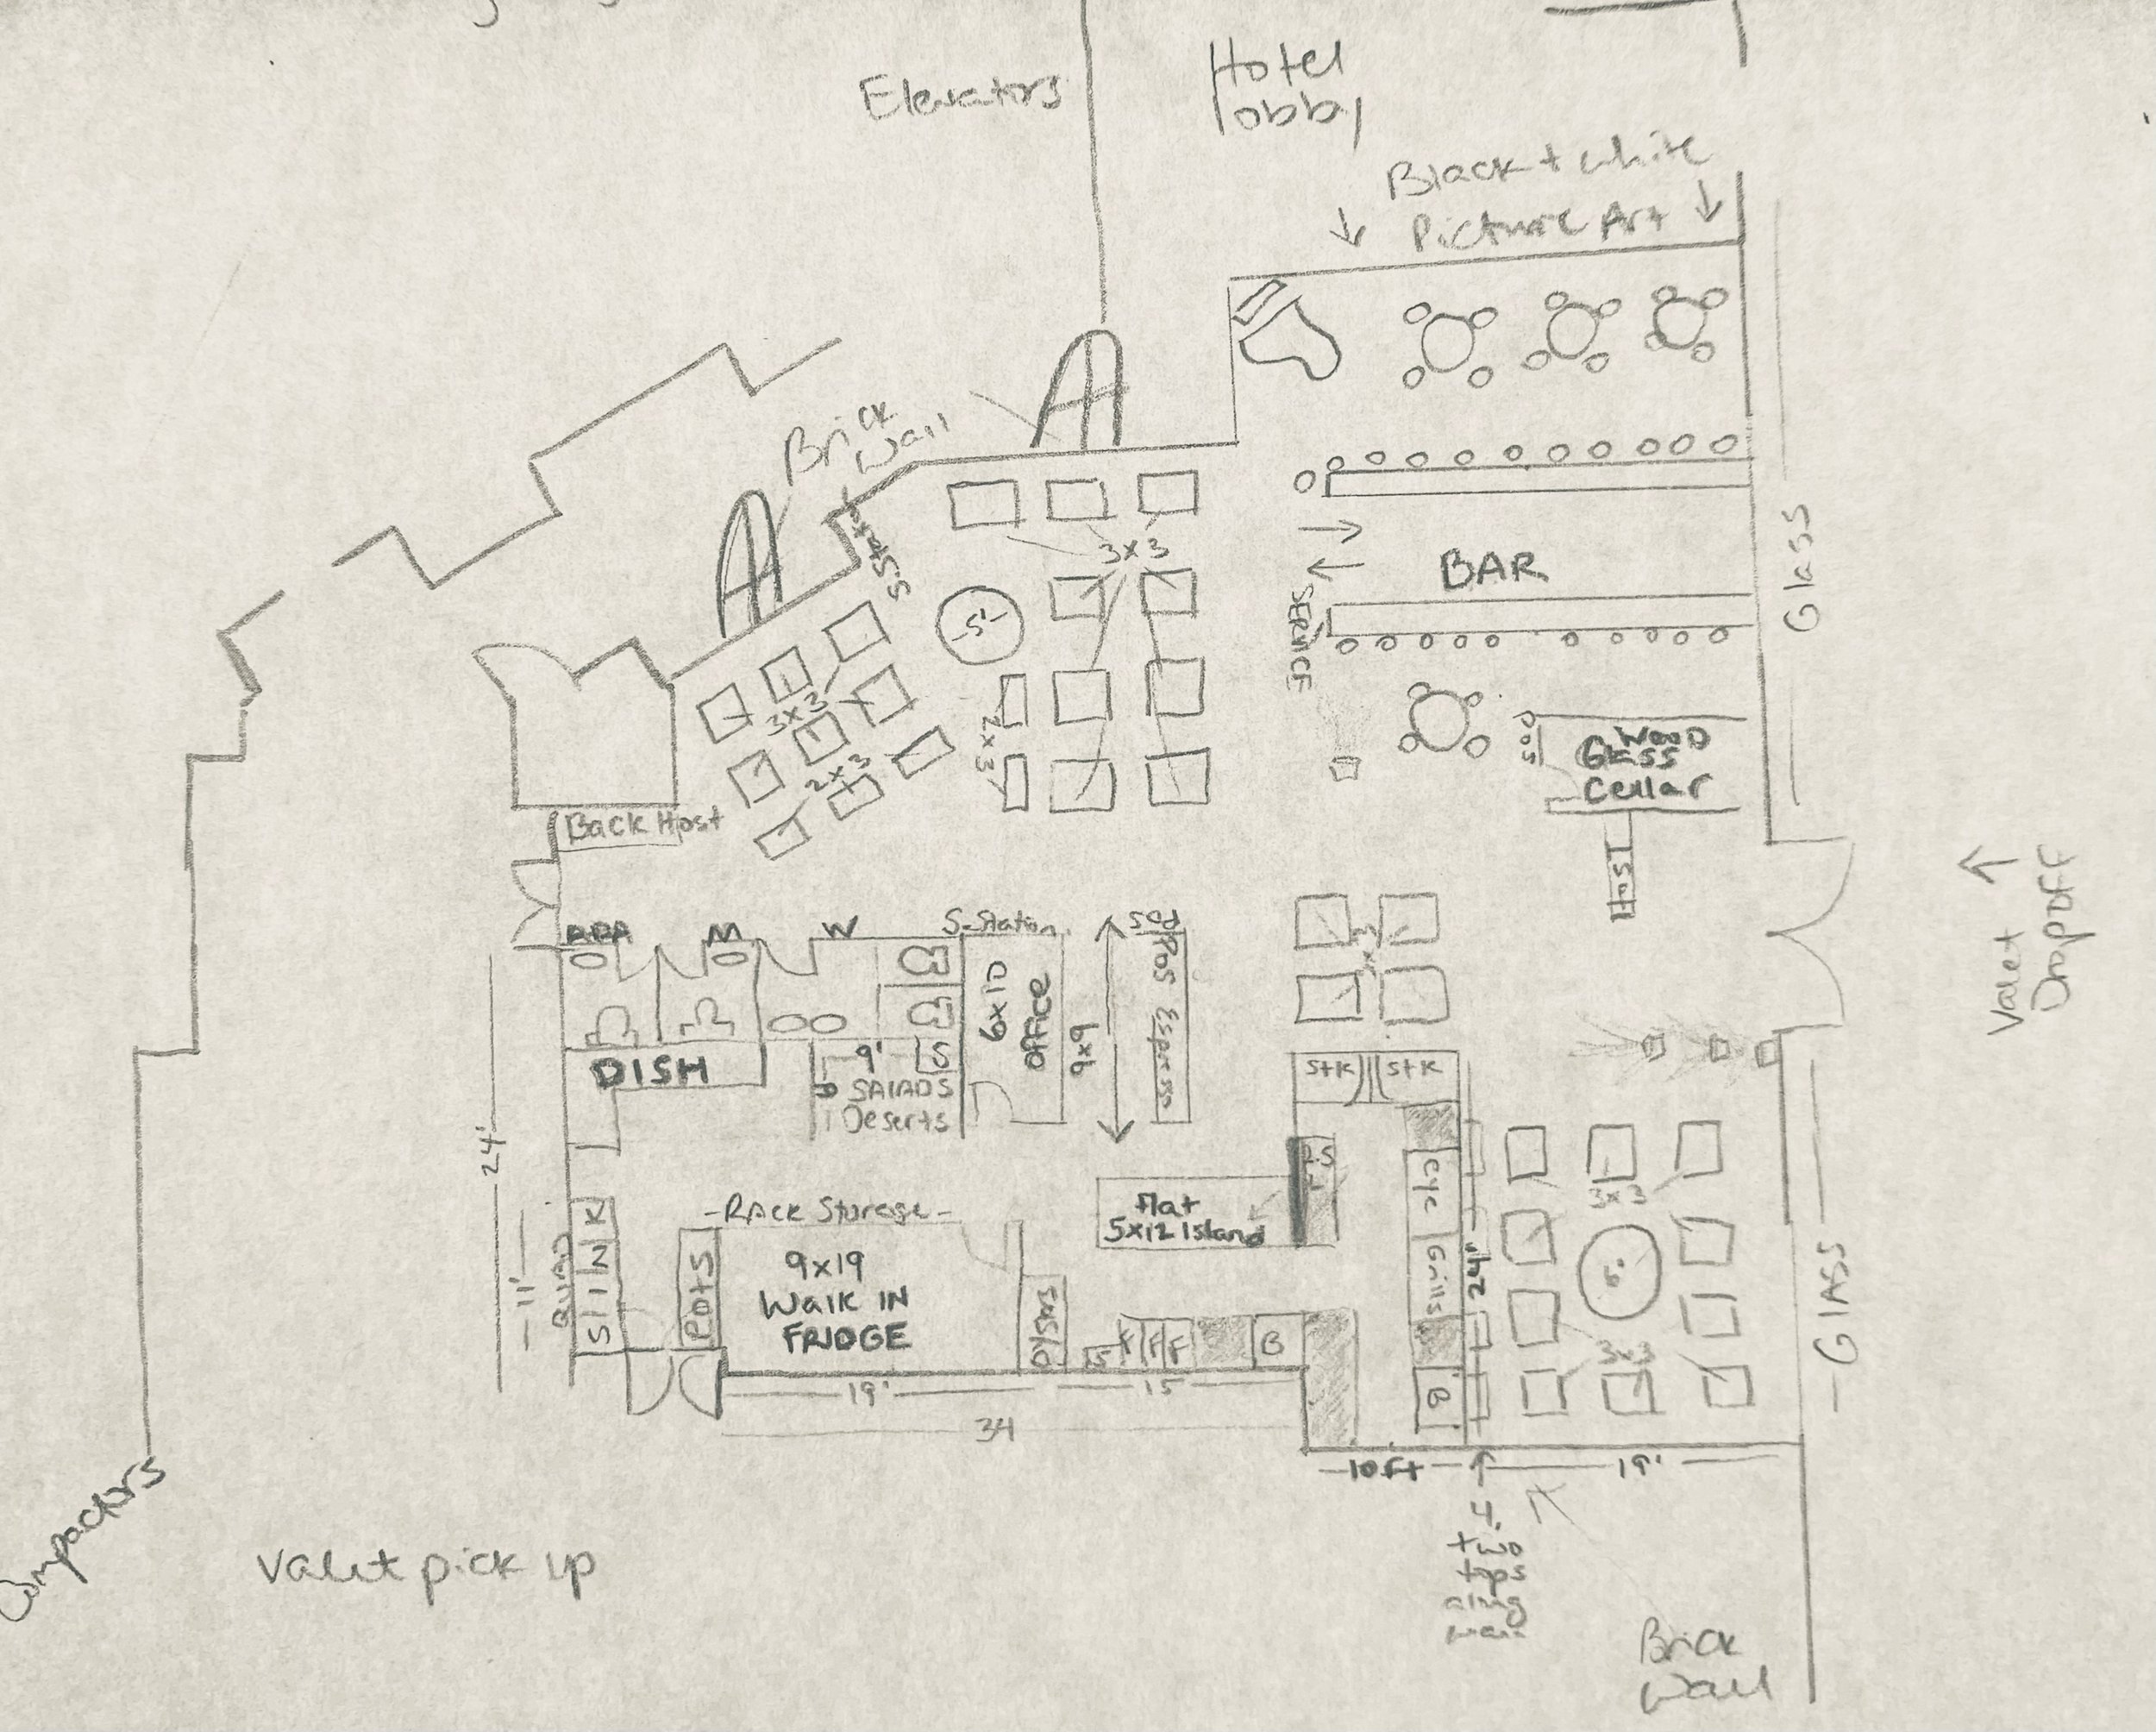 Elevators
Hotel
lobby
Black + white
Picture Art
Brick
Wall
S.Station
3x3
5'
BAR
Glass
SERVICE
3x3
2x3
2x3
WOOD
Glass
Cellar
Back Host
Valet
Dropoff
ADA
M
W
S-Station
POS
6x10
Office
9x9
Espresso
3x3
DISH
9'
S
SALADS
Deserts
STK
STK
24'
Flat
5x12 Island
Cyc
Grills
24'
3x3
6'
3x3
B
-Rack Storage-
9x19
Walk IN
FRIDGE
POTS
SINK
QUAD
11'
DYSXS
F
F
F
B
19'
15
34
10ft
19'
GLASS
4
two
tops
along
wall
Compactors
Valet pick up
Brick
Wall